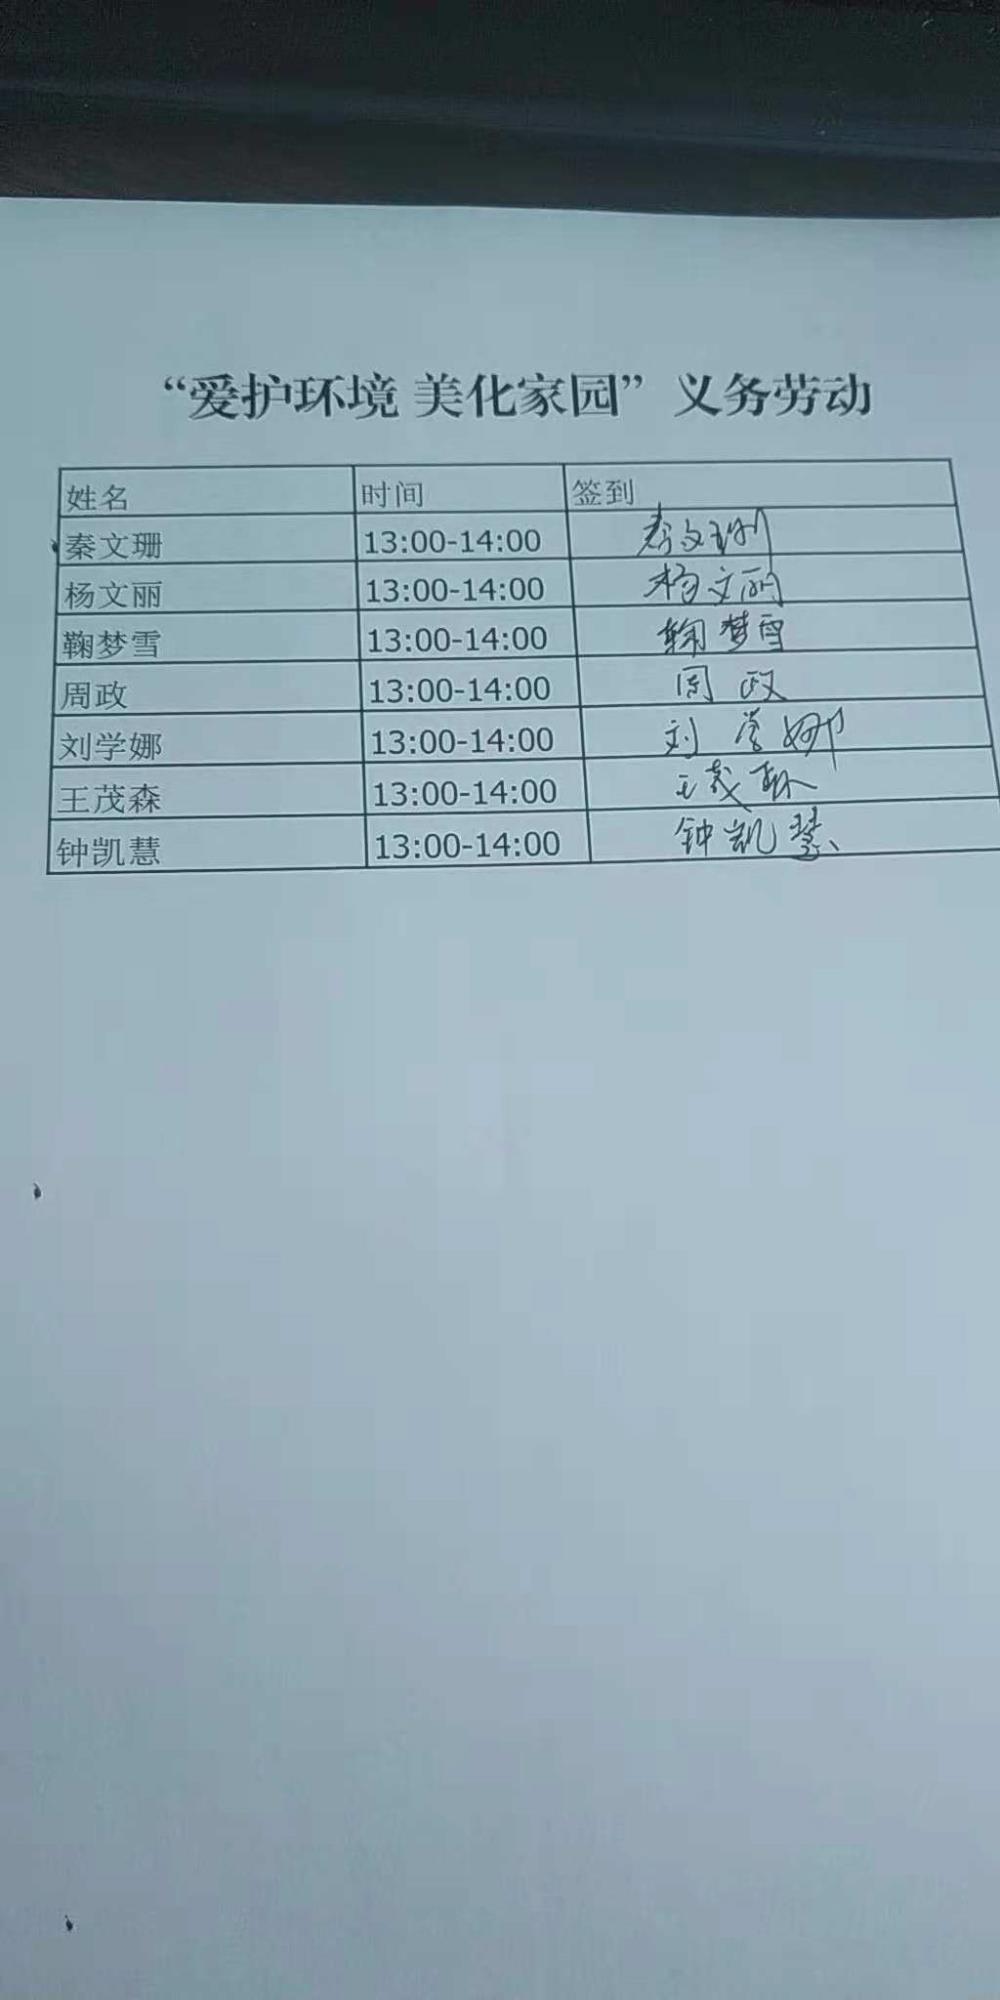 “爱护环境 美化家园”义务劳动
姓名 时间 签到
秦文珊 13:00-14:00 秦文珊
杨文丽 13:00-14:00 杨文丽
鞠梦雪 13:00-14:00 鞠梦雪
周政 13:00-14:00 周政
刘学娜 13:00-14:00 刘学娜
王茂森 13:00-14:00 王茂森
钟凯慧 13:00-14:00 钟凯慧